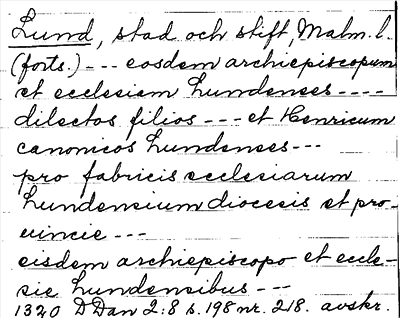 Lund, stad och stift, Malm. l.
(forts.) --- eosdem archiepiscopum
et ecclesiam Lundenses ----
dilectos filios --- et Henricum
canonicos Lundenses ---
pro fabricis ecclesiarum
Lundensium diocesis et pro-
uincie ---
eisdem archiepiscopo et eccle-
sie Lundensibus ---
1320 DDan 2:8 s. 198 nr. 218. avskr.